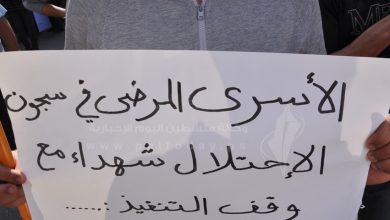 الأسرى المرضى في سجون
الإحتلال شهداء مع
وقف التنفيذ :.....
وكالة فلسطين اليوم الإخبارية
paltoday.ps